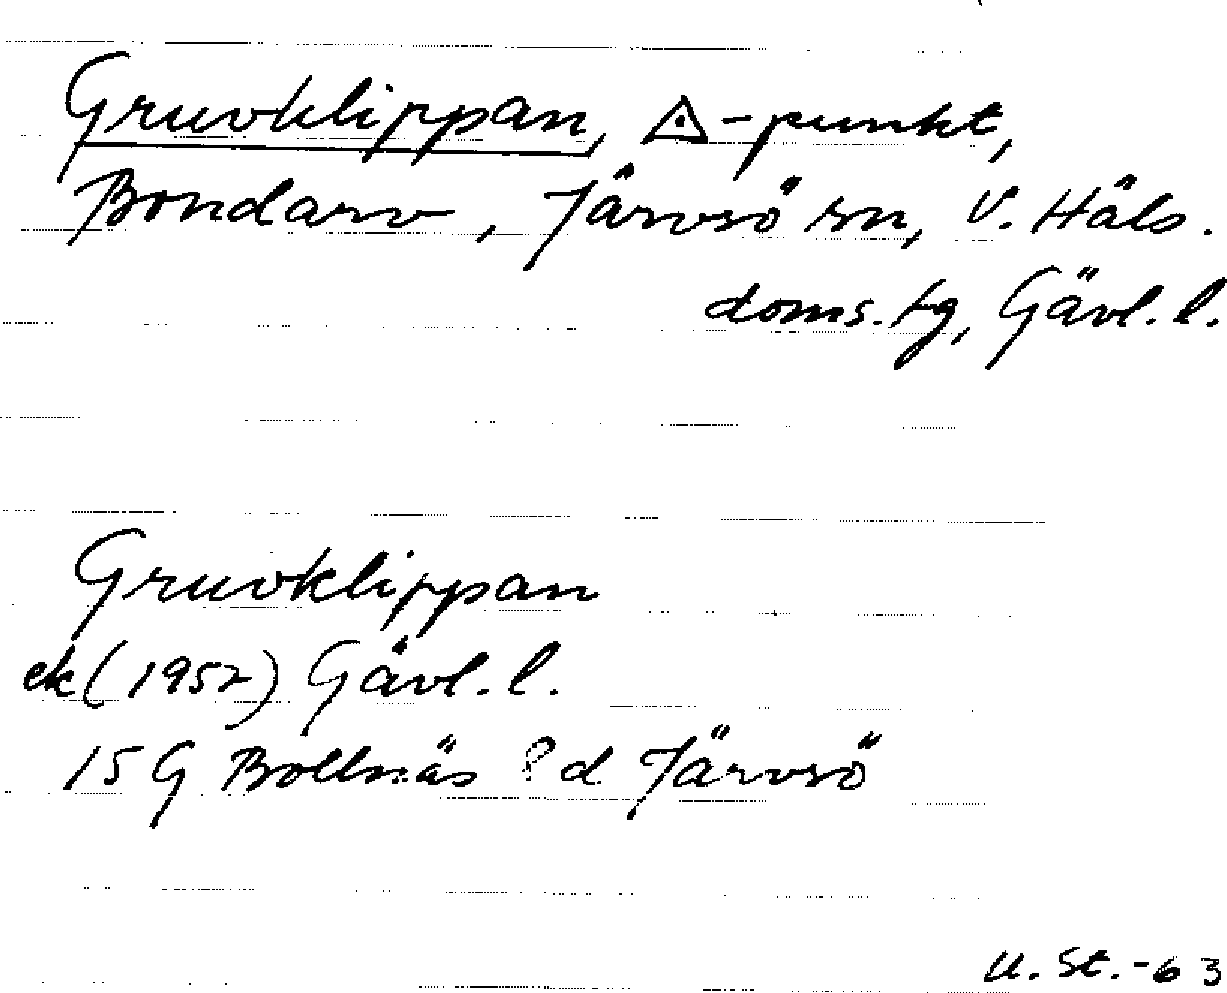 Gruvklippan, △-punkt,
Bondarv, Järvsö sn, V. Häls.
doms. tg, Gävl. l.
Gruvklippan
ek (1952) Gävl. l.
15 G Bollnäs 8 d Järvsö
U. St. -63